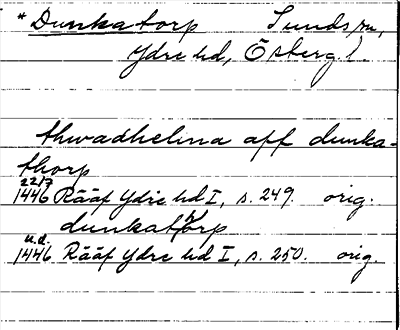 * Dunkatorp Sunds sn,
Ydre hd, Östergl.
thwadhelina aff dunka-
thorp
22/7
1446 Rääf Ydre hd I, s. 249. orig.
dunkatorp
u.d.
1446 Rääf Ydre hd I, s. 250. orig.